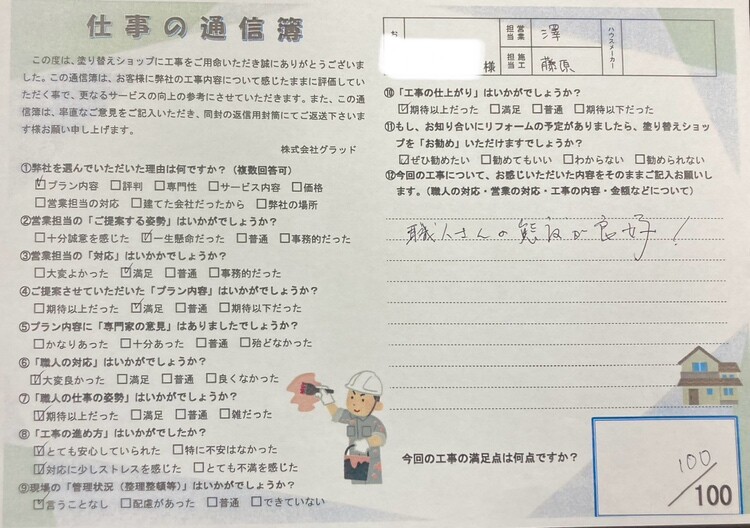 仕事の通信簿
この度は、塗り替えショップに工事をご用命いただき誠にありがとうございました。この通信簿は、お客様に弊社の工事内容について感じたままに評価していただく事で、更なるサービスの向上の参考にさせていただきます。また、この通信簿は、率直なご意見をご記入いただき、同封の返信用封筒にてご返送下さいます様お願い申し上げます。
株式会社グラッド
①弊社を選んでいただいた理由は何ですか?(複数回答可)
☑プラン内容 □評判 □専門性 □サービス内容 □価格
□営業担当の対応 □建てた会社だったから □弊社の場所
②営業担当の「ご提案する姿勢」はいかがでしょうか?
□十分誠意を感じた ☑一生懸命だった □普通 □事務的だった
③営業担当の「対応」はいかかでしょうか?
□大変よかった ☑満足 □普通 □事務的だった
④ご提案させていただいた「プラン内容」はいかがでしょうか?
□期待以上だった ☑満足 □普通 □期待以下だった
⑤プラン内容に「専門家の意見」はありましたでしょうか?
□かなりあった □十分あった □普通 □殆どなかった
⑥「職人の対応」はいかがでしょうか?
☑大変良かった □満足 □普通 □良くなかった
⑦「職人の仕事の姿勢」はいかがでしょうか?
☑期待以上だった □満足 □普通 □雑だった
⑧「工事の進め方」はいかがでしたか?
☑とても安心していられた □特に不安はなかった
☑対応に少しストレスを感じた □とても不満を感じた
⑨現場の「管理状況(整理整頓等)」はいかがでしょうか?
☑言うことなし □配慮があった □普通 □できていない
お
様
営業担当 澤
施工担当 藤原
ハウスメーカー
⑩「工事の仕上がり」はいかがでしょうか?
☑期待以上だった □満足 □普通 □期待以下だった
⑪もし、お知り合いにリフォームの予定がありましたら、塗り替えショップを「お勧め」いただけますでしょうか?
☑ぜひ勧めたい □勧めてもいい □わからない □勧められない
⑫今回の工事について、お感じいただいた内容をそのままご記入お願いします。(職人の対応・営業の対応・工事の内容・金額などについて)
職人さんの態度が良好!
今回の工事の満足点は何点ですか?
100
/100